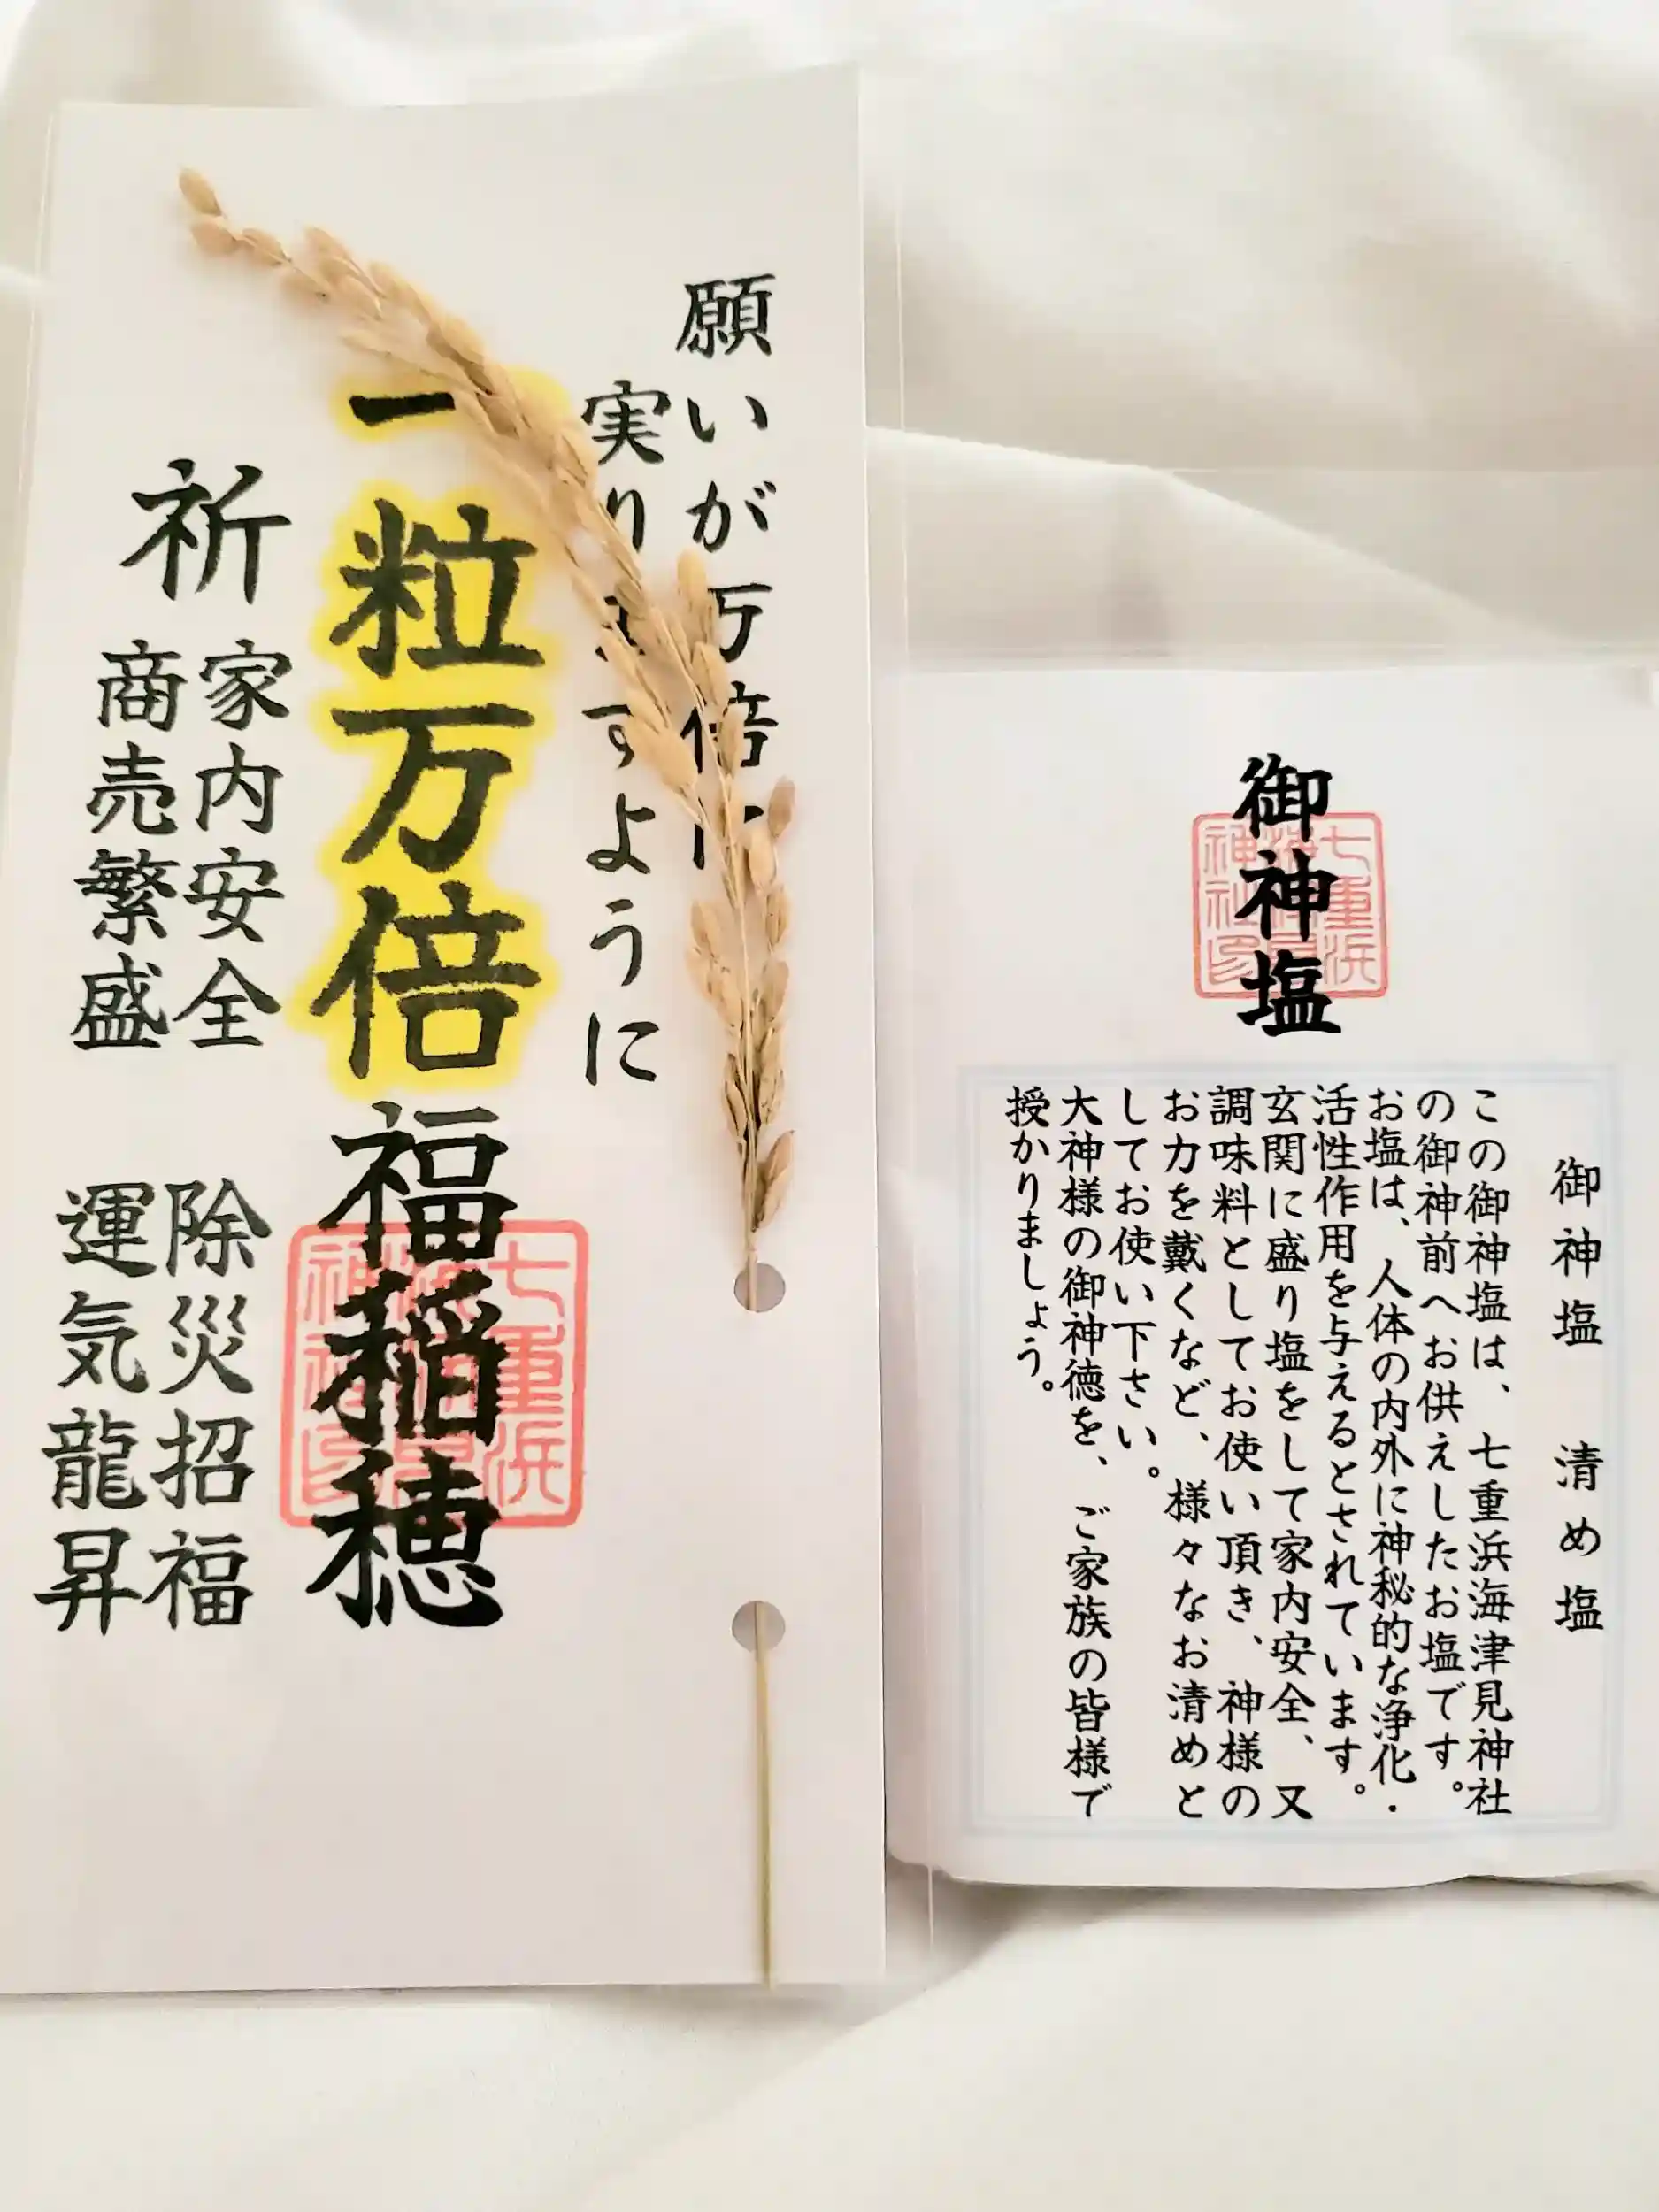 願いが万倍に
実りますように
一粒万倍福稲穂
祈
家内安全
商売繁盛
除災招福
運気龍昇
御神塩
御神塩　清め塩
この御神塩は、七重浜海津見神社
の御神前へお供えしたお塩です。
お塩は、人体の内外に神秘的な浄化・
活性作用を与えるとされています。
玄関に盛り塩をして家内安全、又
調味料としてお使い頂き、神様の
お力を戴くなど、様々なお清めと
してお使い下さい。
大神様の御神徳を、ご家族の皆様で
授かりましょう。